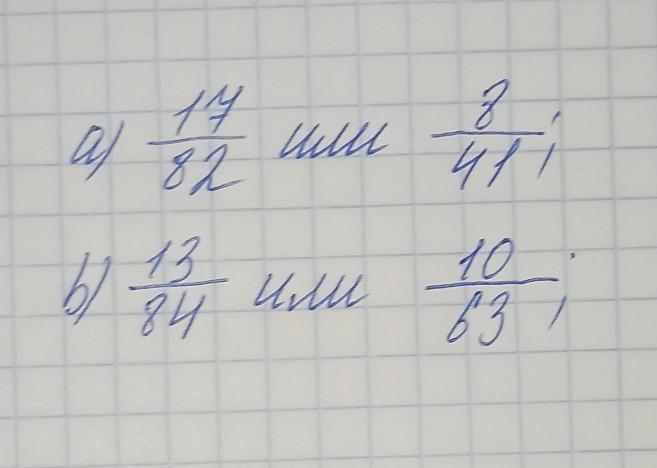 a) 17/82 или 8/41;
b) 13/84 или 10/63;